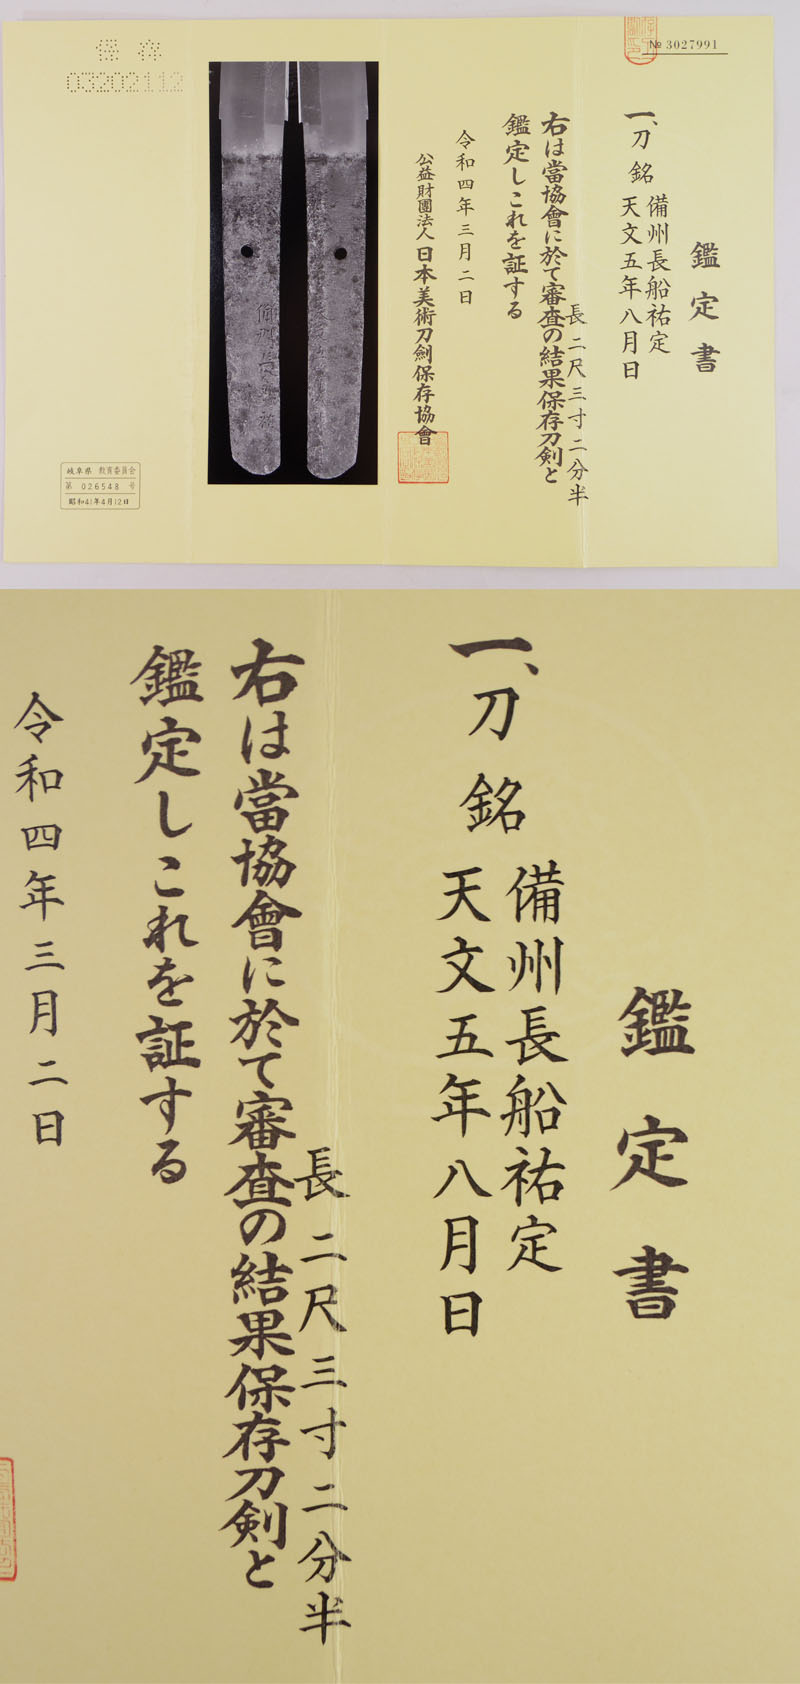 № 3027991
鑑定書
一、刀 銘 備州長船祐定
天文五年八月日
長二尺三寸二分半
右は當協會に於て審査の結果保存刀剣と
鑑定しこれを証する
令和四年三月二日
公益財團法人日本美術刀劍保存協會
保存
03202112
岐阜県 教育委員会
第 026548 号
昭和41年4月12日
鑑定書
一、刀 銘 備州長船祐定
天文五年八月日
長二尺三寸二分半
右は當協會に於て審査の結果保存刀剣と
鑑定しこれを証する
令和四年三月二日